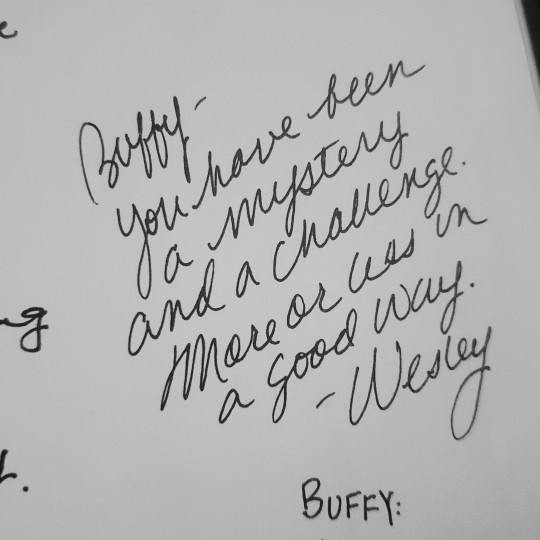 Buffy-
you have been
a mystery
and a challenge.
More or less in
a good way.
- Wesley
BUFFY: